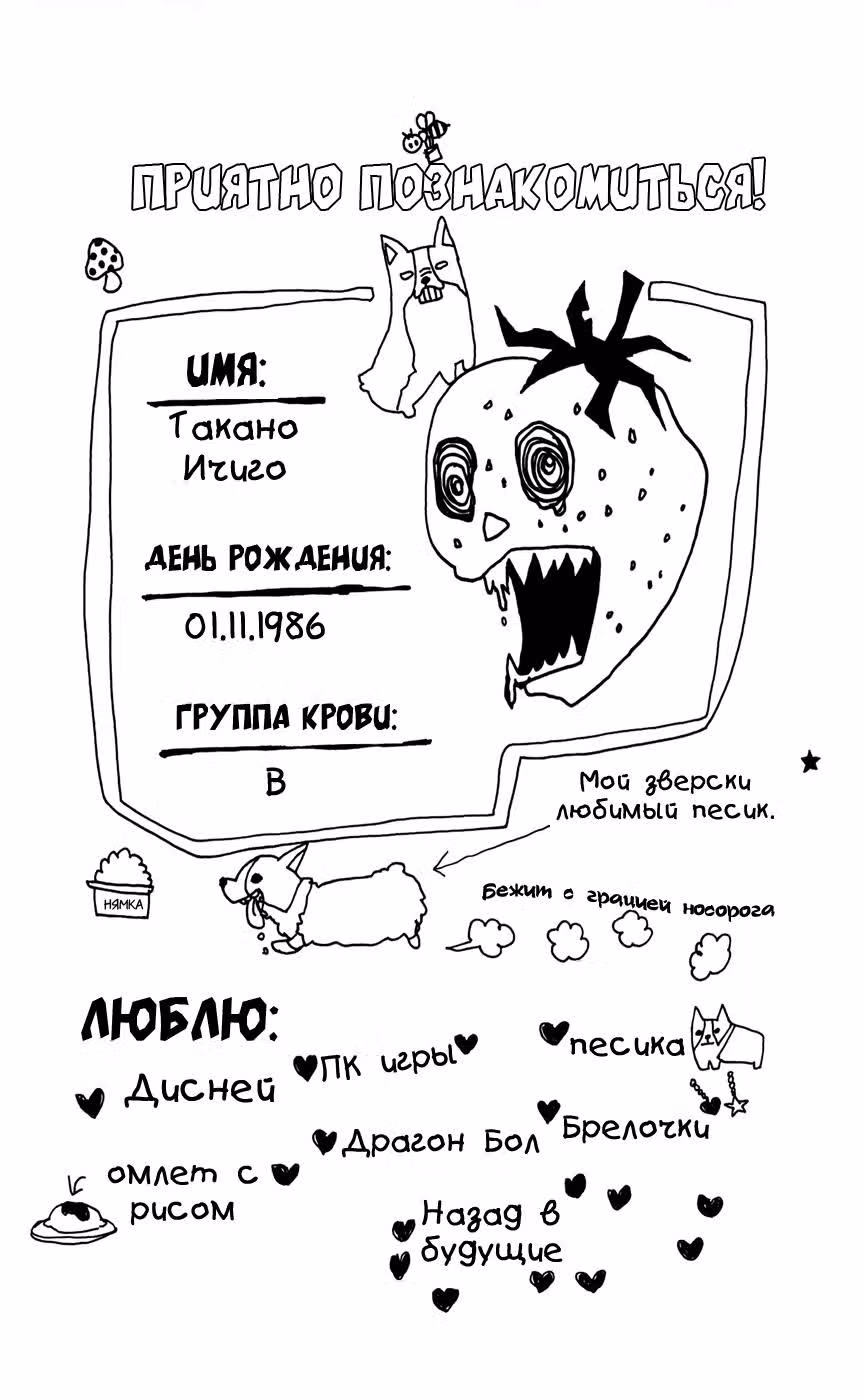 ПРИЯТНО ПОЗНАКОМИТЬСЯ!
ИМЯ:
Такано
Ичиго
ДЕНЬ РОЖДЕНИЯ:
01.11.1986
ГРУППА КРОВИ:
В
Мой зверски
любимый песик.
НЯМКА
Бежит с грацией носорога
ЛЮБЛЮ:
Дисней
ПК игры
песика
Драгон Бол
Брелочки
омлет с
рисом
Назад в
будущие